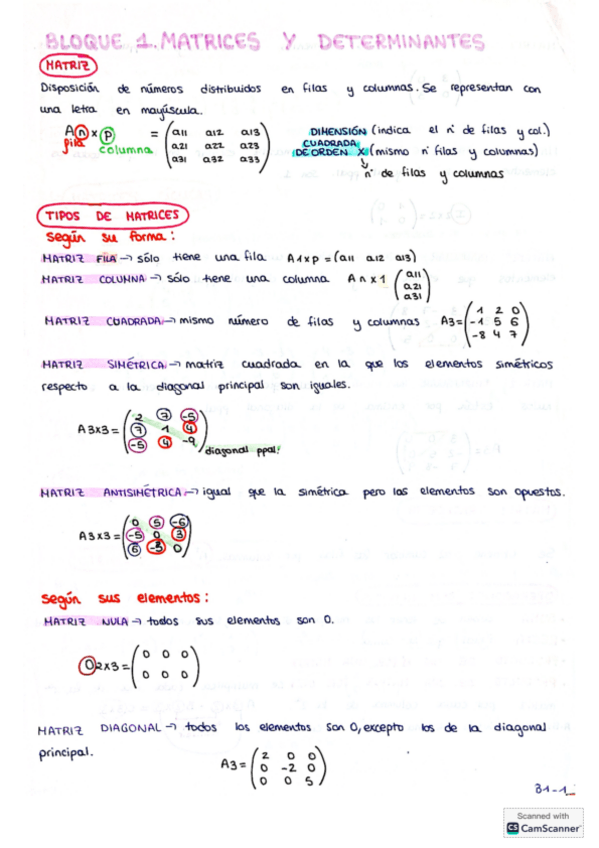 BLOQUE 1. MATRICES Y DETERMINANTES
MATRIZ
Disposición de números distribuidos en filas y columnas. Se representan con
una letra en mayúscula.
A n x p = (a11 a12 a13
a21 a22 a23
a31 a32 a33)
fila
columna
DIMENSIÓN (indica el nº de filas y col.)
CUADRADA
DE ORDEN X (mismo nº filas y columnas)
nº de filas y columnas
TIPOS DE MATRICES
según su forma:
MATRIZ FILA → sólo tiene una fila A1xp = (a11 a12 a13)
MATRIZ COLUMNA → sólo tiene una columna Anx1 (a11
a21
a31)
MATRIZ CUADRADA → mismo número de filas y columnas A3 = (1 2 0
-1 5 6
-8 4 7)
MATRIZ SIMÉTRICA → matriz cuadrada en la que los elementos simétricos
respecto a la diagonal principal son iguales.
A3x3 = (2 7 -5
7 1 4
-5 4 -9)
diagonal ppal.
MATRIZ ANTISIMÉTRICA → igual que la simétrica pero los elementos son opuestos.
A3x3 = (0 5 -6
-5 0 3
6 -3 0)
según sus elementos:
MATRIZ NULA → todos sus elementos son 0.
O2x3 = (0 0 0
0 0 0)
MATRIZ DIAGONAL → todos los elementos son 0, excepto los de la diagonal
principal.
A3 = (2 0 0
0 -2 0
0 0 5)
B1-1
Scanned with
CS CamScanner